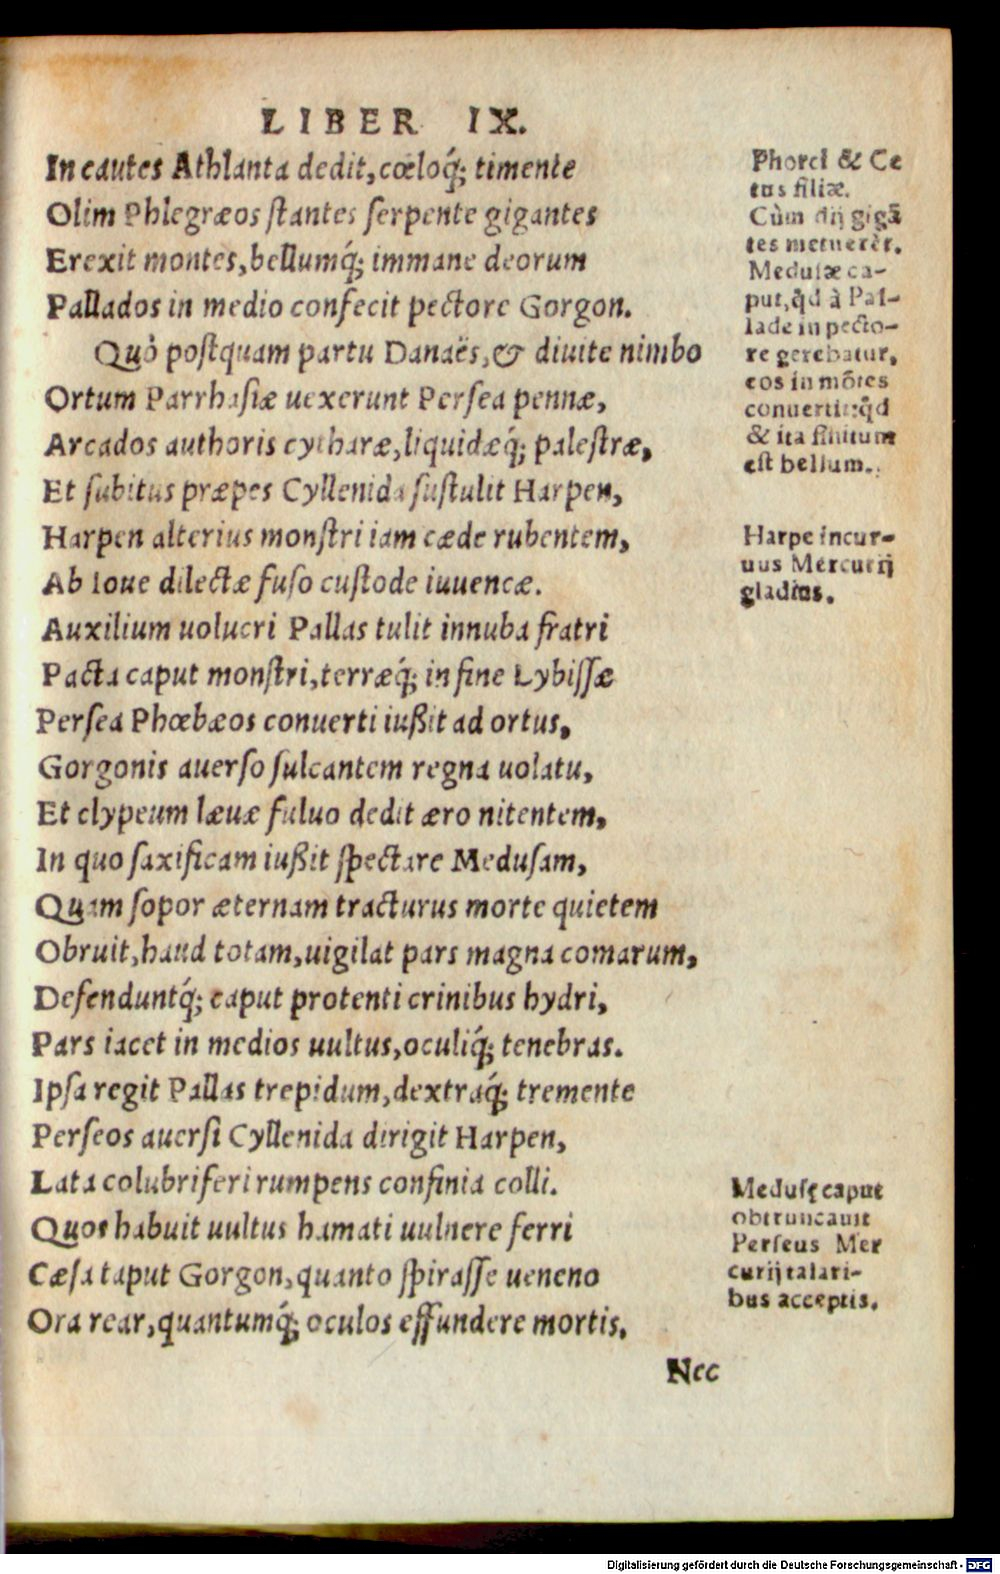 LIBER IX.
In cautes Athlanta dedit, cœloq́; timente
Olim Phlegræos stantes serpente gigantes
Erexit montes, bellumq́; immane deorum
Pallados in medio confecit pectore Gorgon.
Quò postquam partu Danaës, & diuite nimbo
Ortum Parrhasiæ uexerunt Persea pennæ,
Arcados authoris cytharæ, liquidæq́; palestræ,
Et subitus præpes Cyllenida sustulit Harpen,
Harpen alterius monstri iam cæde rubentem,
Ab Ioue dilectæ fuso custode iuuencæ.
Auxilium uolucri Pallas tulit innuba fratri
Pacta caput monstri, terræq́; in fine Lybissæ
Persea Phœbæos conuerti iußit ad ortus,
Gorgonis auerso sulcantem regna uolatu,
Et clypeum læuæ fuluo dedit æro nitentem,
In quo saxificam iußit spectare Medusam,
Quam sopor æternam tracturus morte quietem
Obruit, haud totam, uigilat pars magna comarum,
Defenduntq́; caput protenti crinibus hydri,
Pars iacet in medios uultus, oculiq́; tenebras.
Ipsa regit Pallas trepidum, dextraq́; tremente
Perseos auersi Cyllenida dirigit Harpen,
Lata colubriferi rumpens confinia colli.
Quos habuit uultus hamati uulnere ferri
Cæsa taput Gorgon, quanto spirasse ueneno
Ora rear, quantumq́; oculos effundere mortis.
Nec
Phorci & Ce
tus filiæ.
Cùm dij gigā
tes metuerēt.
Medusæ ca-
put, q̃d à Pal-
lade in pecto-
re gerebatur,
eos in mōtes
conuertit: q̃d
& ita finitum
est bellum.
Harpe incur-
uus Mercurij
gladius.
Medusę caput
obtruncauit
Perseus Mer
curij talari-
bus acceptis.
Digitalisierung gefördert durch die Deutsche Forschungsgemeinschaft - DFG